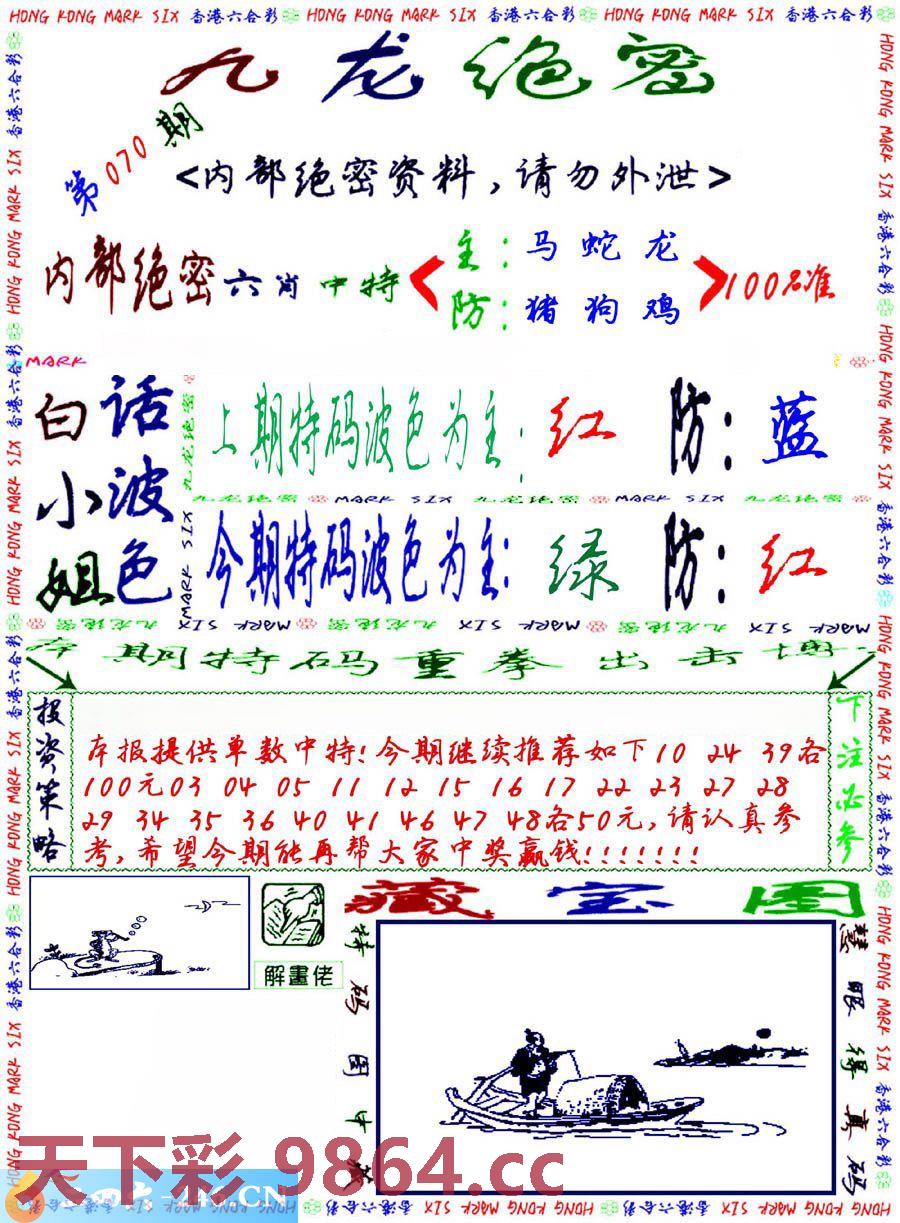 HONG KONG MARK SIX 香港六合彩 HONG KONG MARK SIX 香港六合彩 HONG KONG MARK SIX 香港六合彩
九龙绝密
第070期
<内部绝密资料,请勿外泄>
内部绝密六肖中特
主:马蛇龙
防:猪狗鸡
100%准
MARK
白话小波姐色
上期特码波色为主:红 防:蓝
九龙绝密 MARK SIX 九龙绝密 MARK SIX 九龙绝密
今期特码波色为主:绿 防:红
MARK SIX 九龙绝密 MARK SIX 九龙绝密 MARK SIX 九龙绝密
本期特码重拳出击博
投资策略
本报提供单数中特!今期继续推荐如下10 24 39各
100元03 04 05 11 12 15 16 17 22 23 27 28
29 34 35 36 40 41 46 47 48各50元,请认真参
考,希望今期能再帮大家中奖赢钱!!!!!!!
下注必参
藏宝图
解畫佬
特码图中藏
慧眼得真码
天下彩.9864.cc